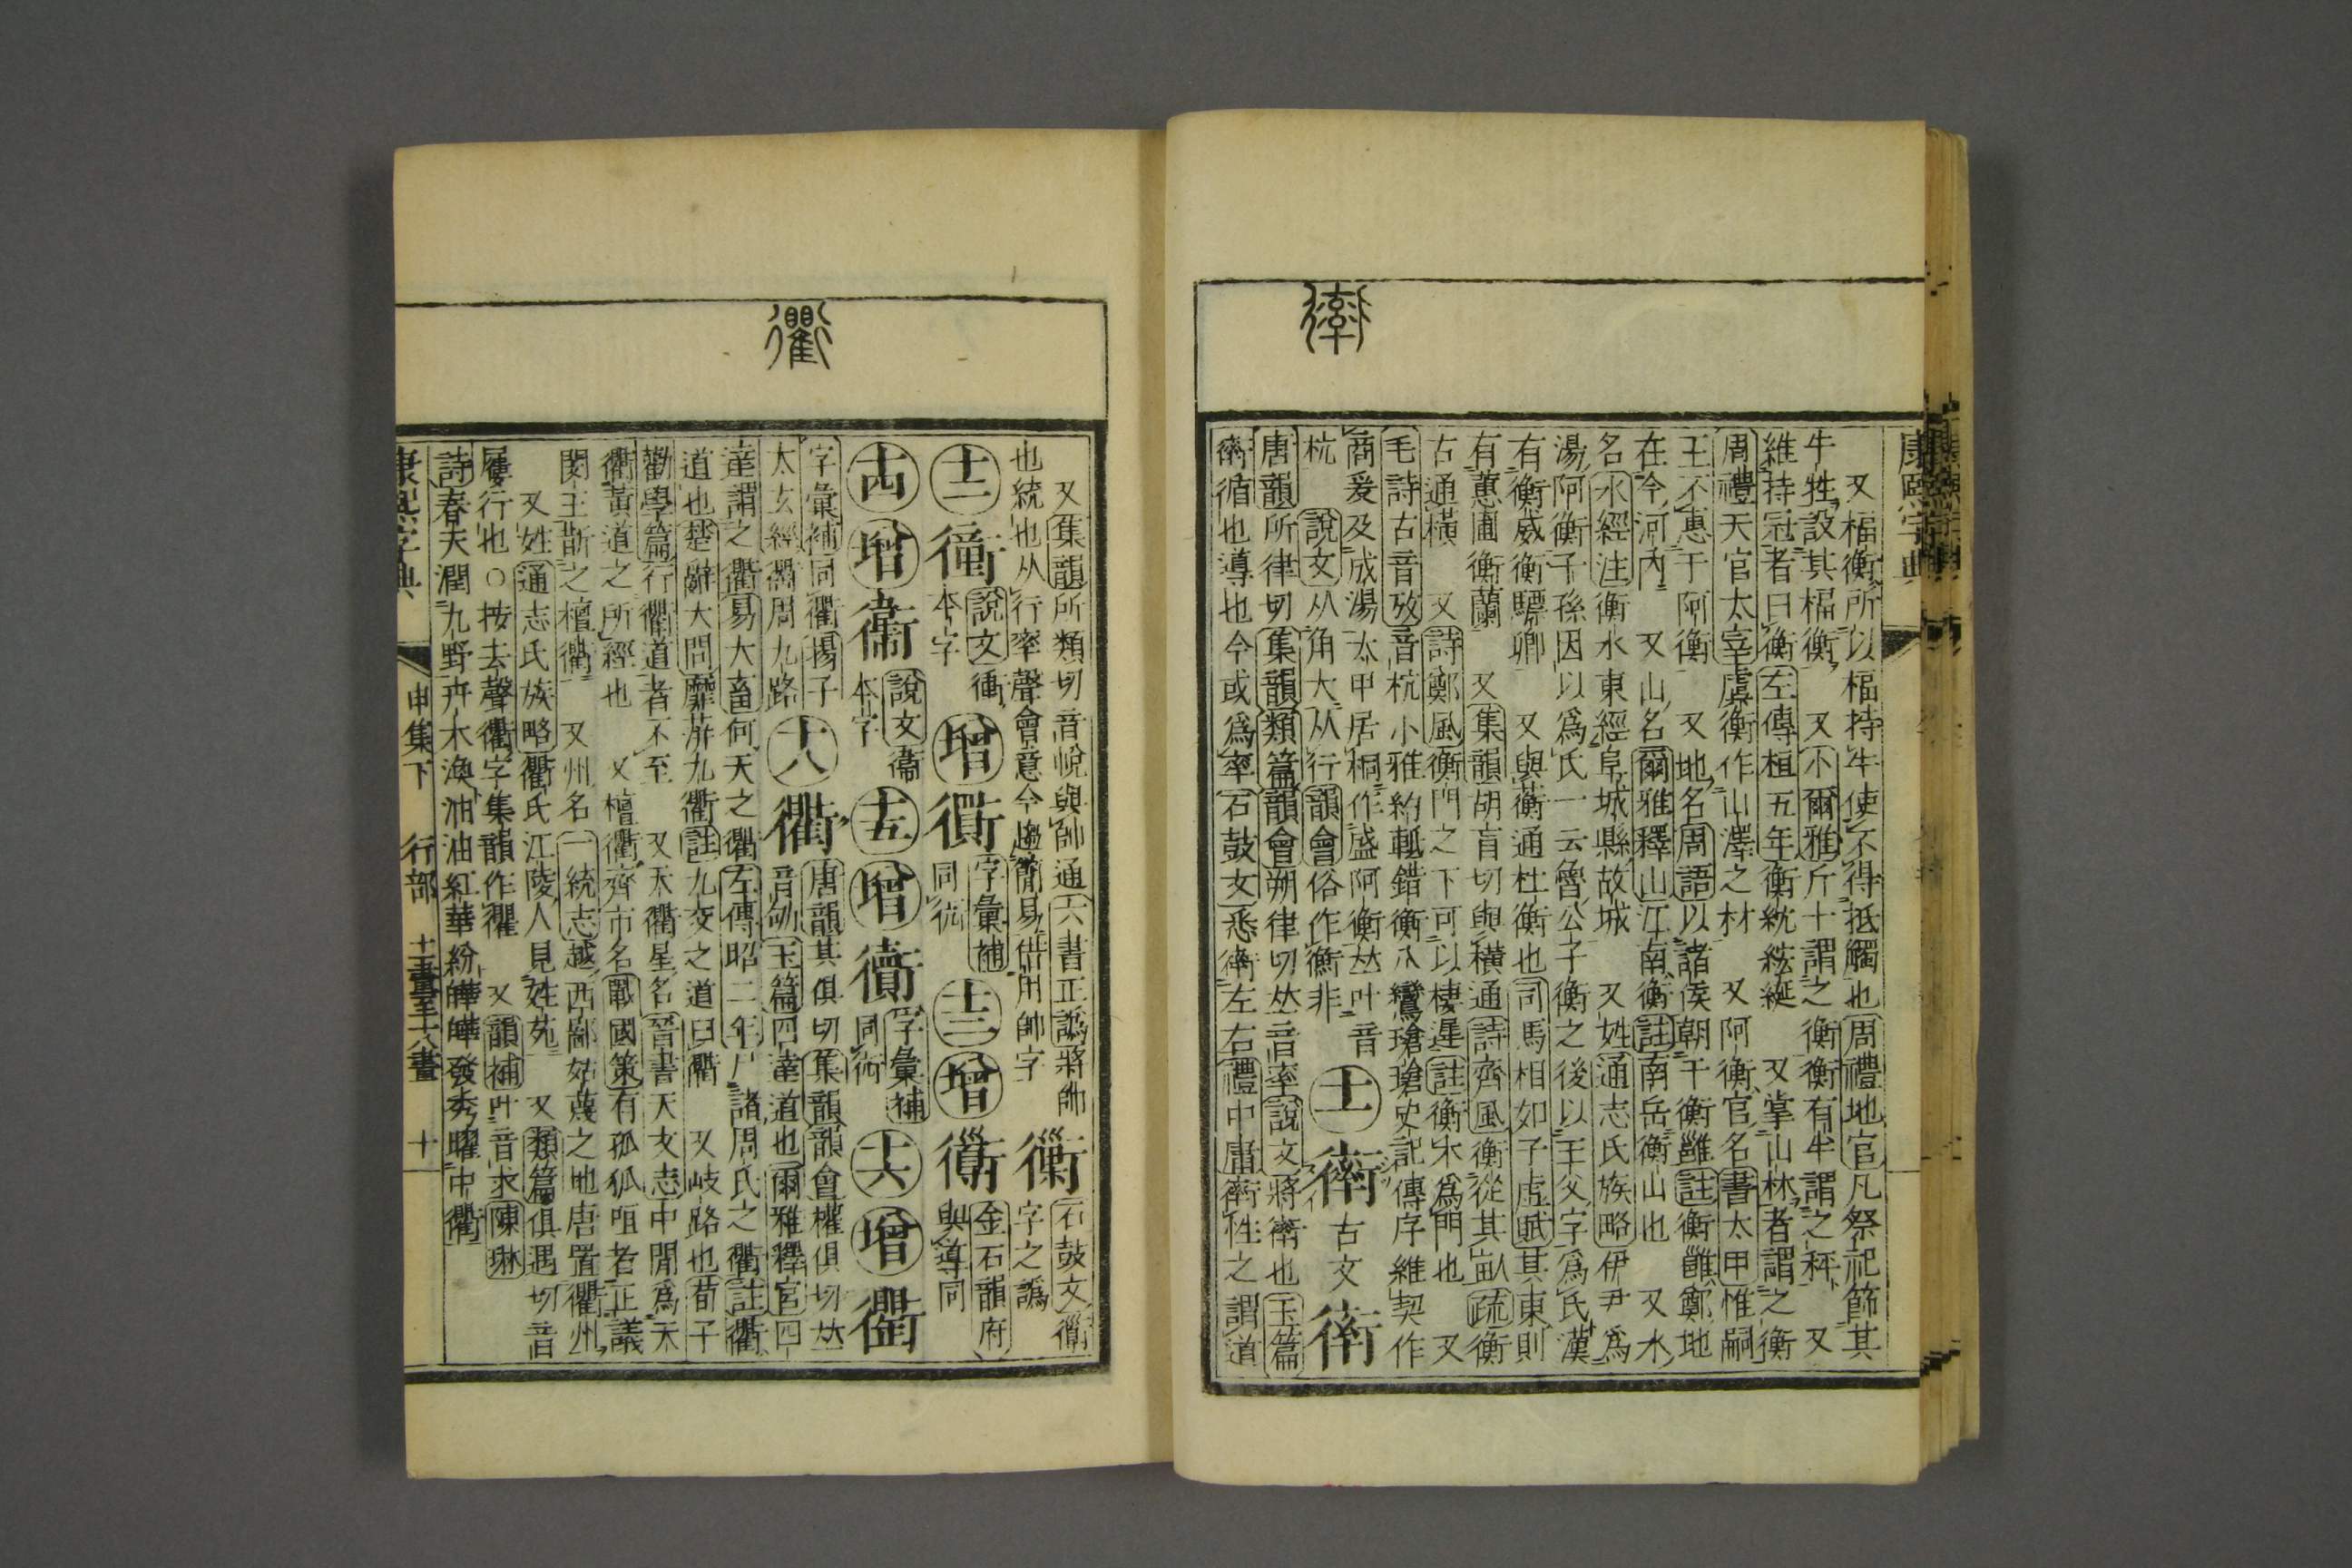 康熙字典
又楅衡所以楅持牛使不得抵觸也周禮地官凡祭祀飾其
牛牲設其楅衡 又小爾雅斤十謂之衡衡有半謂之秤 又
維持冠者曰衡左傳桓五年衡紞紘綖 又掌山林者謂之衡
周禮天官太宰虞衡作山澤之材 又阿衡官名書太甲惟嗣
王不惠于阿衡 又地名周語以諸侯朝于衡雝註衡雝鄭地
在今河內 又山名爾雅釋山江南衡註南岳衡山也 又水
名水經注衡水東經阜城縣故城 又姓通志氏族略伊尹爲
湯阿衡子孫因以爲氏一云魯公子衡之後以王父字爲氏漢
有衡威衡驃卿 又與蘅通杜衡也司馬相如子虛賦其東則
有蕙圃衡蘭 又集韻胡盲切與橫通詩齊風衡從其畝疏衡
古通橫 又詩鄭風衡門之下可以棲遲註衡木爲門也 又
毛詩古音攷音杭小雅約軝錯衡八鸞瑲瑲史記傳序維契作
商爰及成湯太甲居桐作盛阿衡𠀤叶音
杭 說文从角大从行韻會俗作衡非
十一 𧗿 古文
唐韻所律切集韻類篇韻會朔律切𠀤音率說文將𧗿也玉篇
𧗿循也導也今或爲率石鼓文悉𧗿左右禮中庸𧗿性之謂道
𧗿
又集韻所類切音帨與帥通六書正譌將帥
也統也从行率聲會意今趨簡易借用帥字
石鼓文 字之譌
十二 說文衝本字
增 字彙補同衏
十三 增 金石韻府與導同
十四 增 說文衞本字
十五 增 字彙補同術
十六 增
字彙補同衢揚子
太玄經 周九路
十八 衢
唐韻其俱切集韻韻會權俱切𠀤
音劬玉篇四達道也爾雅釋宮四
達謂之衢易大畜何天之衢左傳昭二年尸諸周氏之衢註衢
道也楚辭天問靡蓱九衢註九交之道曰衢 又岐路也荀子
勸學篇行衢道者不至 又天衢星名晉書天文志中閒爲天
衢黃道之所經也 又檀衢齊市名戰國策有孤狐咺者正議
閔王斮之檀衢 又州名一統志越西鄙姑蔑之地唐置衢州
又姓通志氏族略衢氏江陵人見姓苑 又類篇俱遇切音
屨行也○按去聲衢字集韻作躣 又韻補叶音求陳琳
詩春天潤九野卉木渙油油紅華紛曄曄發秀曜中衢
康熙字典 申集下 行部 十一畫至十八畫 十
衢